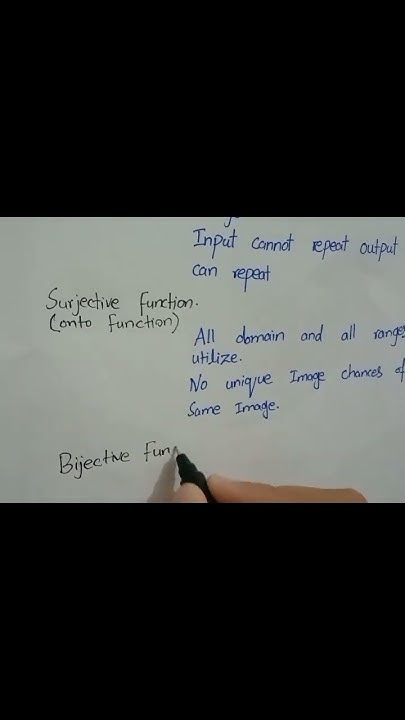 Input cannot repeat output
can repeat
Surjective function.
(onto function)
All domain and all range
utilize.
No unique Image chances of
Same Image.
Bijective Fun